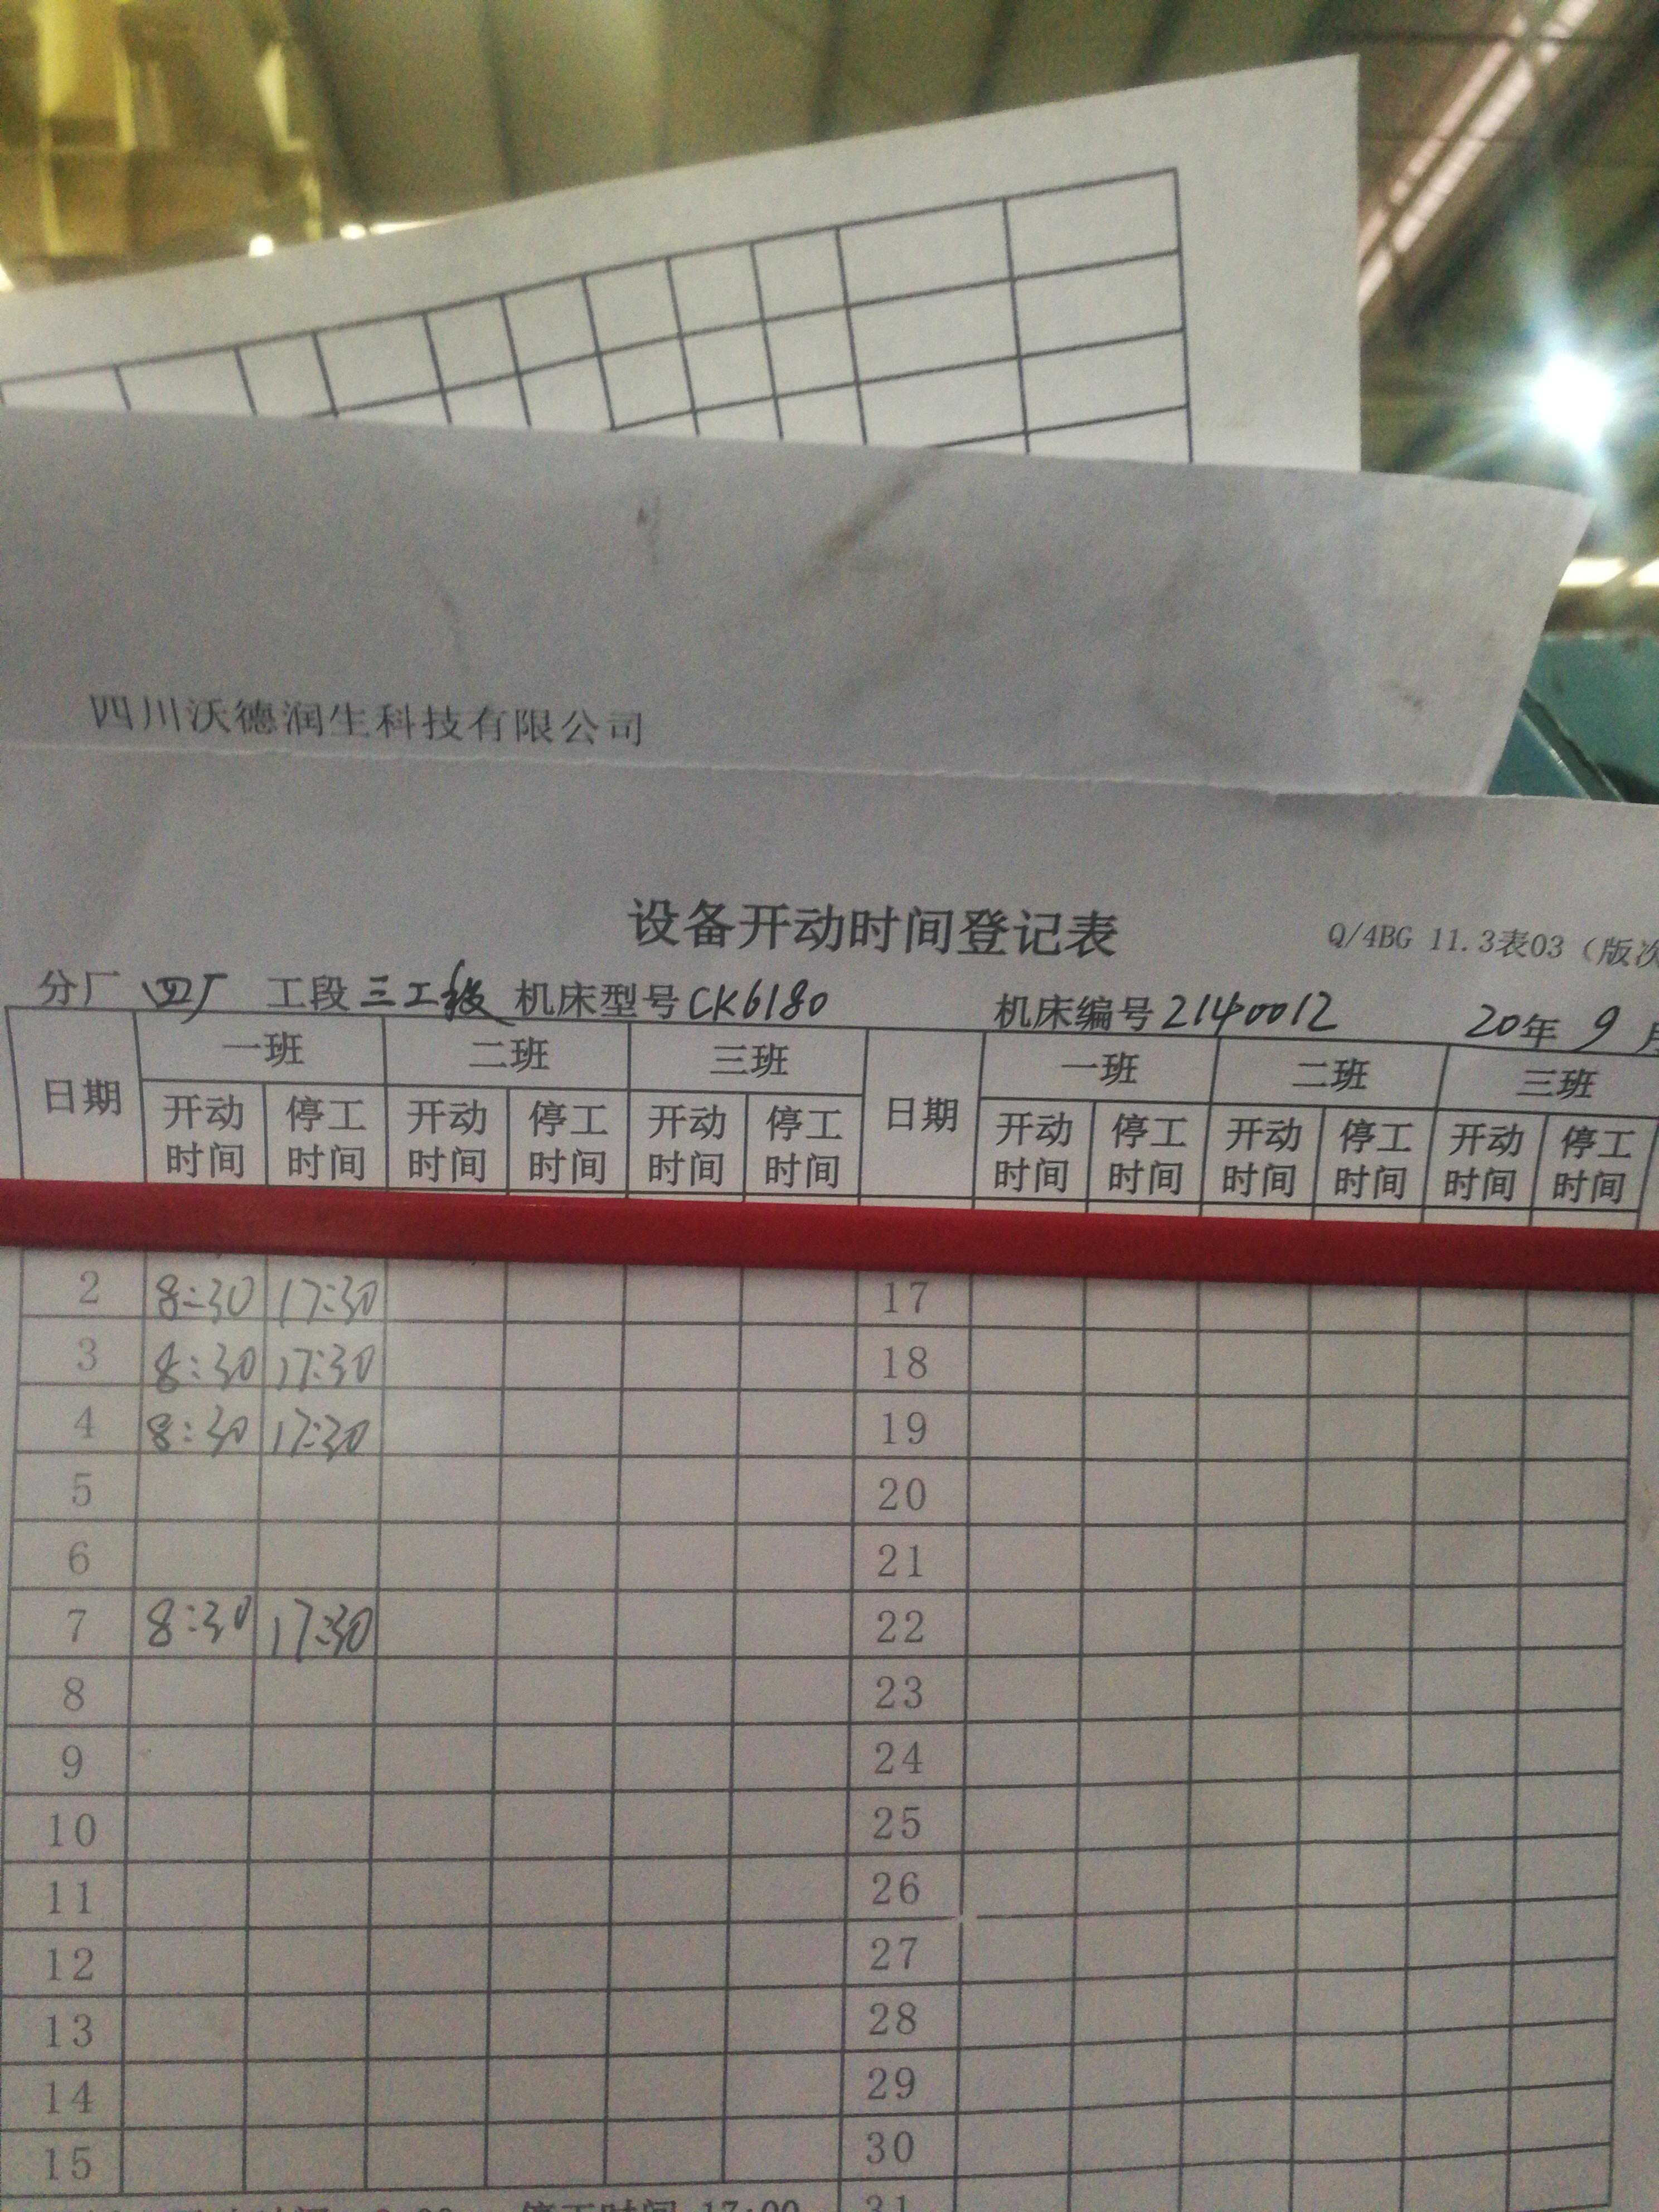 四川沃德润生科技有限公司
设备开动时间登记表
Q/4BG 11.3表03（版次
分厂 四厂 工段 三工段 机床型号 CK6180 机床编号 2140012 20年 9 月
日期 一班 二班 三班 日期 一班 二班 三班
开动时间 停工时间 开动时间 停工时间 开动时间 停工时间 开动时间 停工时间 开动时间 停工时间 开动时间 停工时间
2 8:30 17:30 17
3 8:30 17:30 18
4 8:30 17:30 19
5 20
6 21
7 8:30 17:30 22
8 23
9 24
10 25
11 26
12 27
13 28
14 29
15 30
停工时间 17:00 31